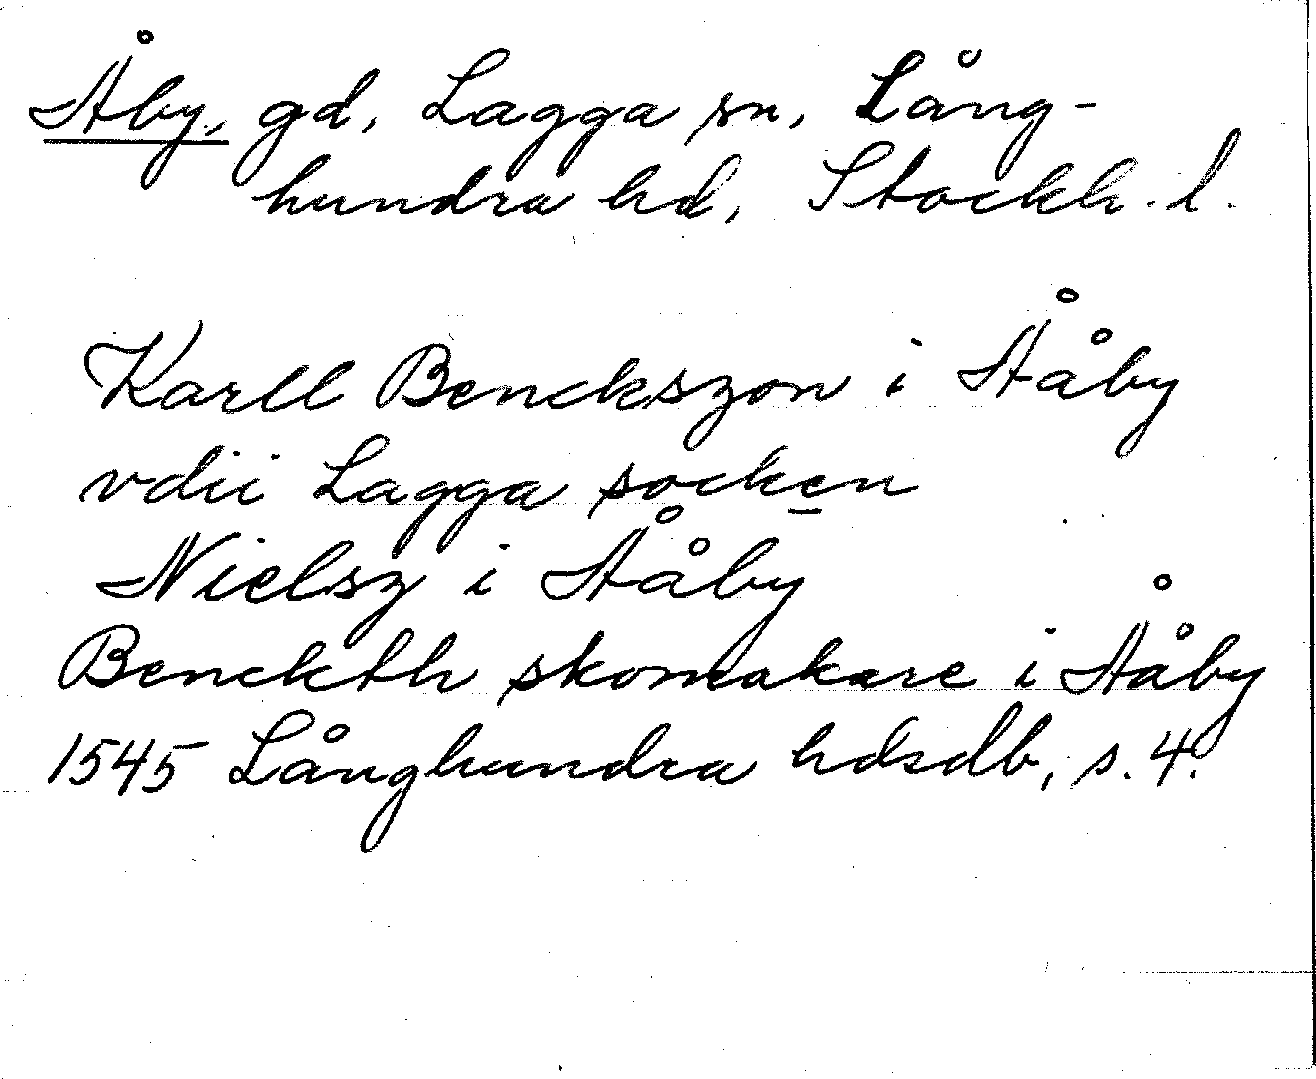 Åby, gd, Lagga sn, Lång-
hundra hd, Stockh. l.
Karll Benckszon i Ååby
vdii Lagga socken
Nielsz i Ååby
Benckth skomakare i Ååby
1545 Långhundra hdsdb, s. 4.